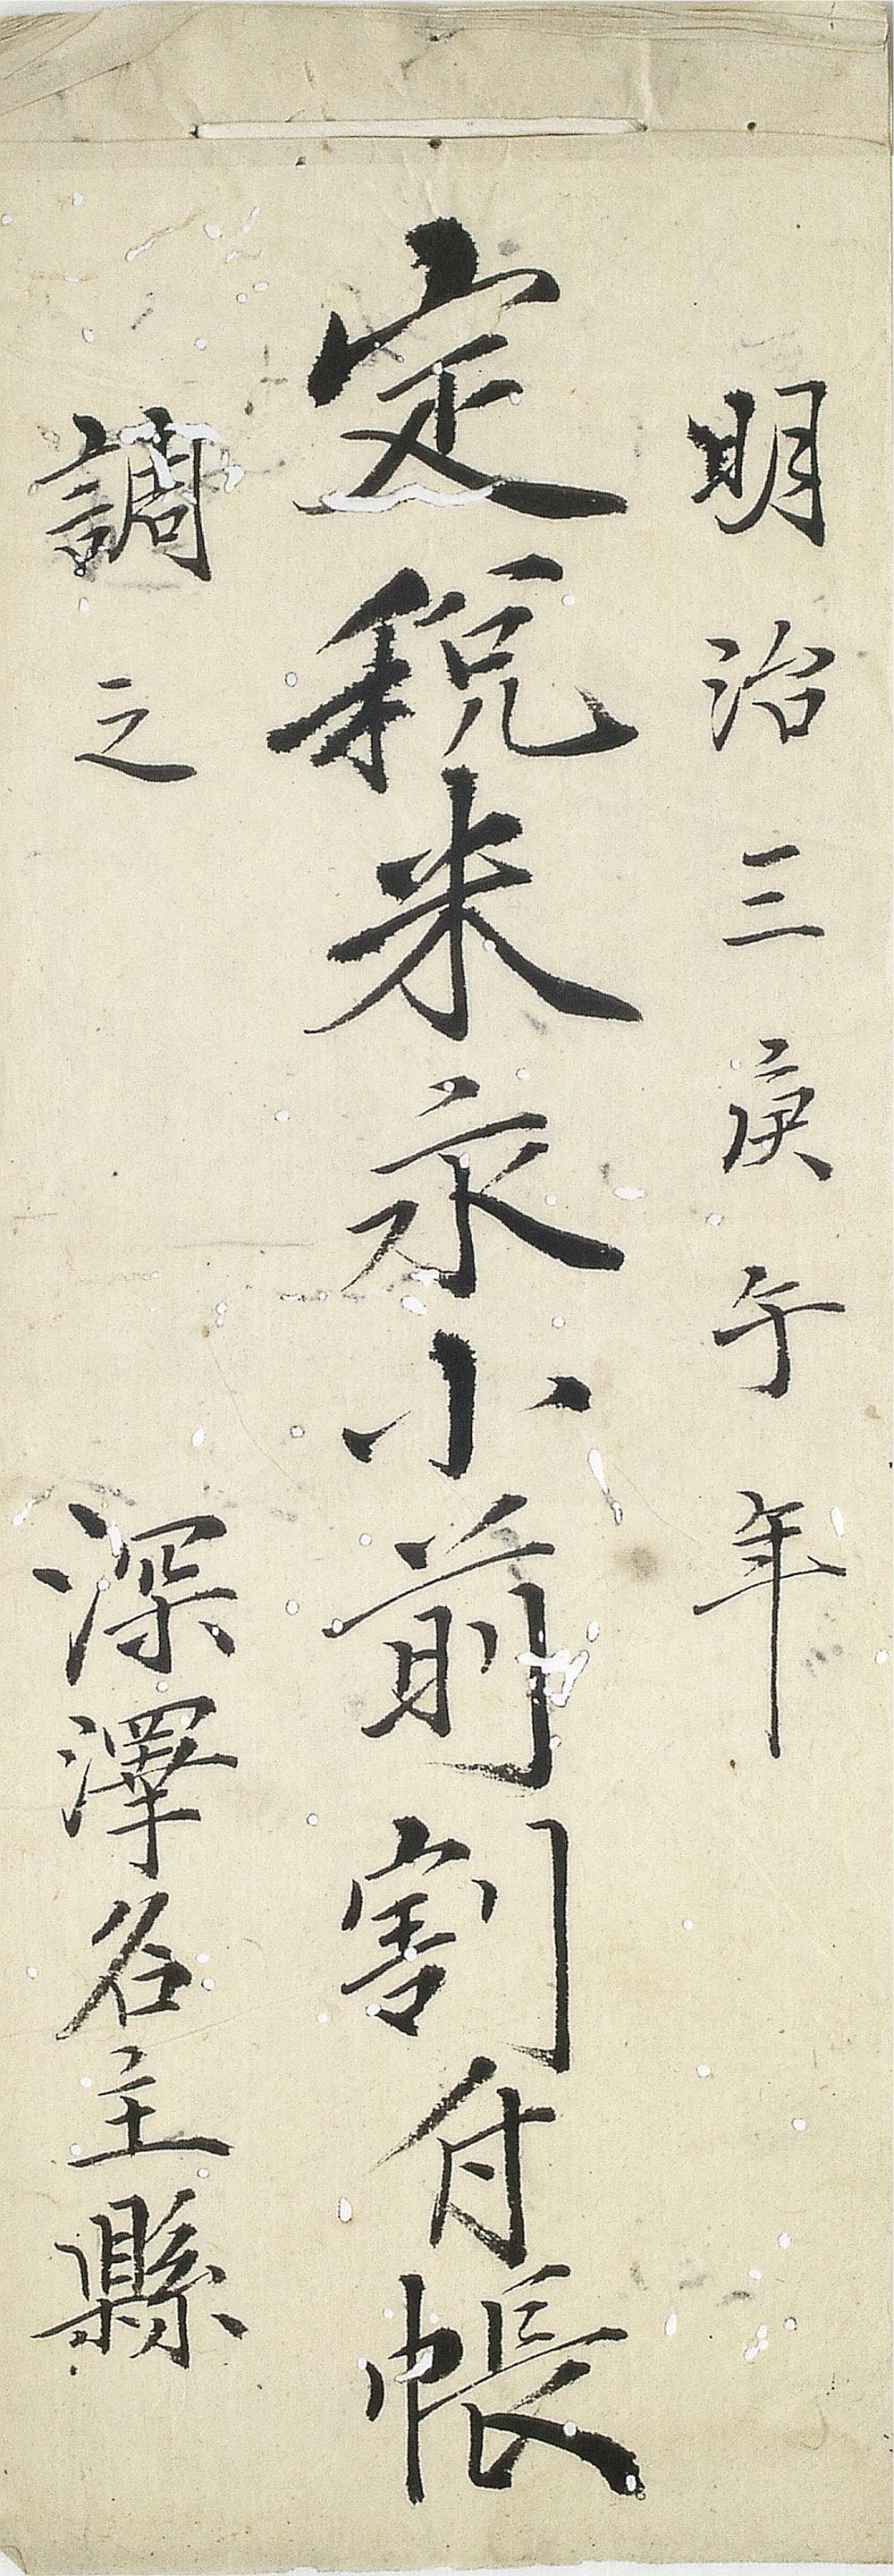 明治三庚午年
定税米永小前割付帳
調之
深澤名主縣